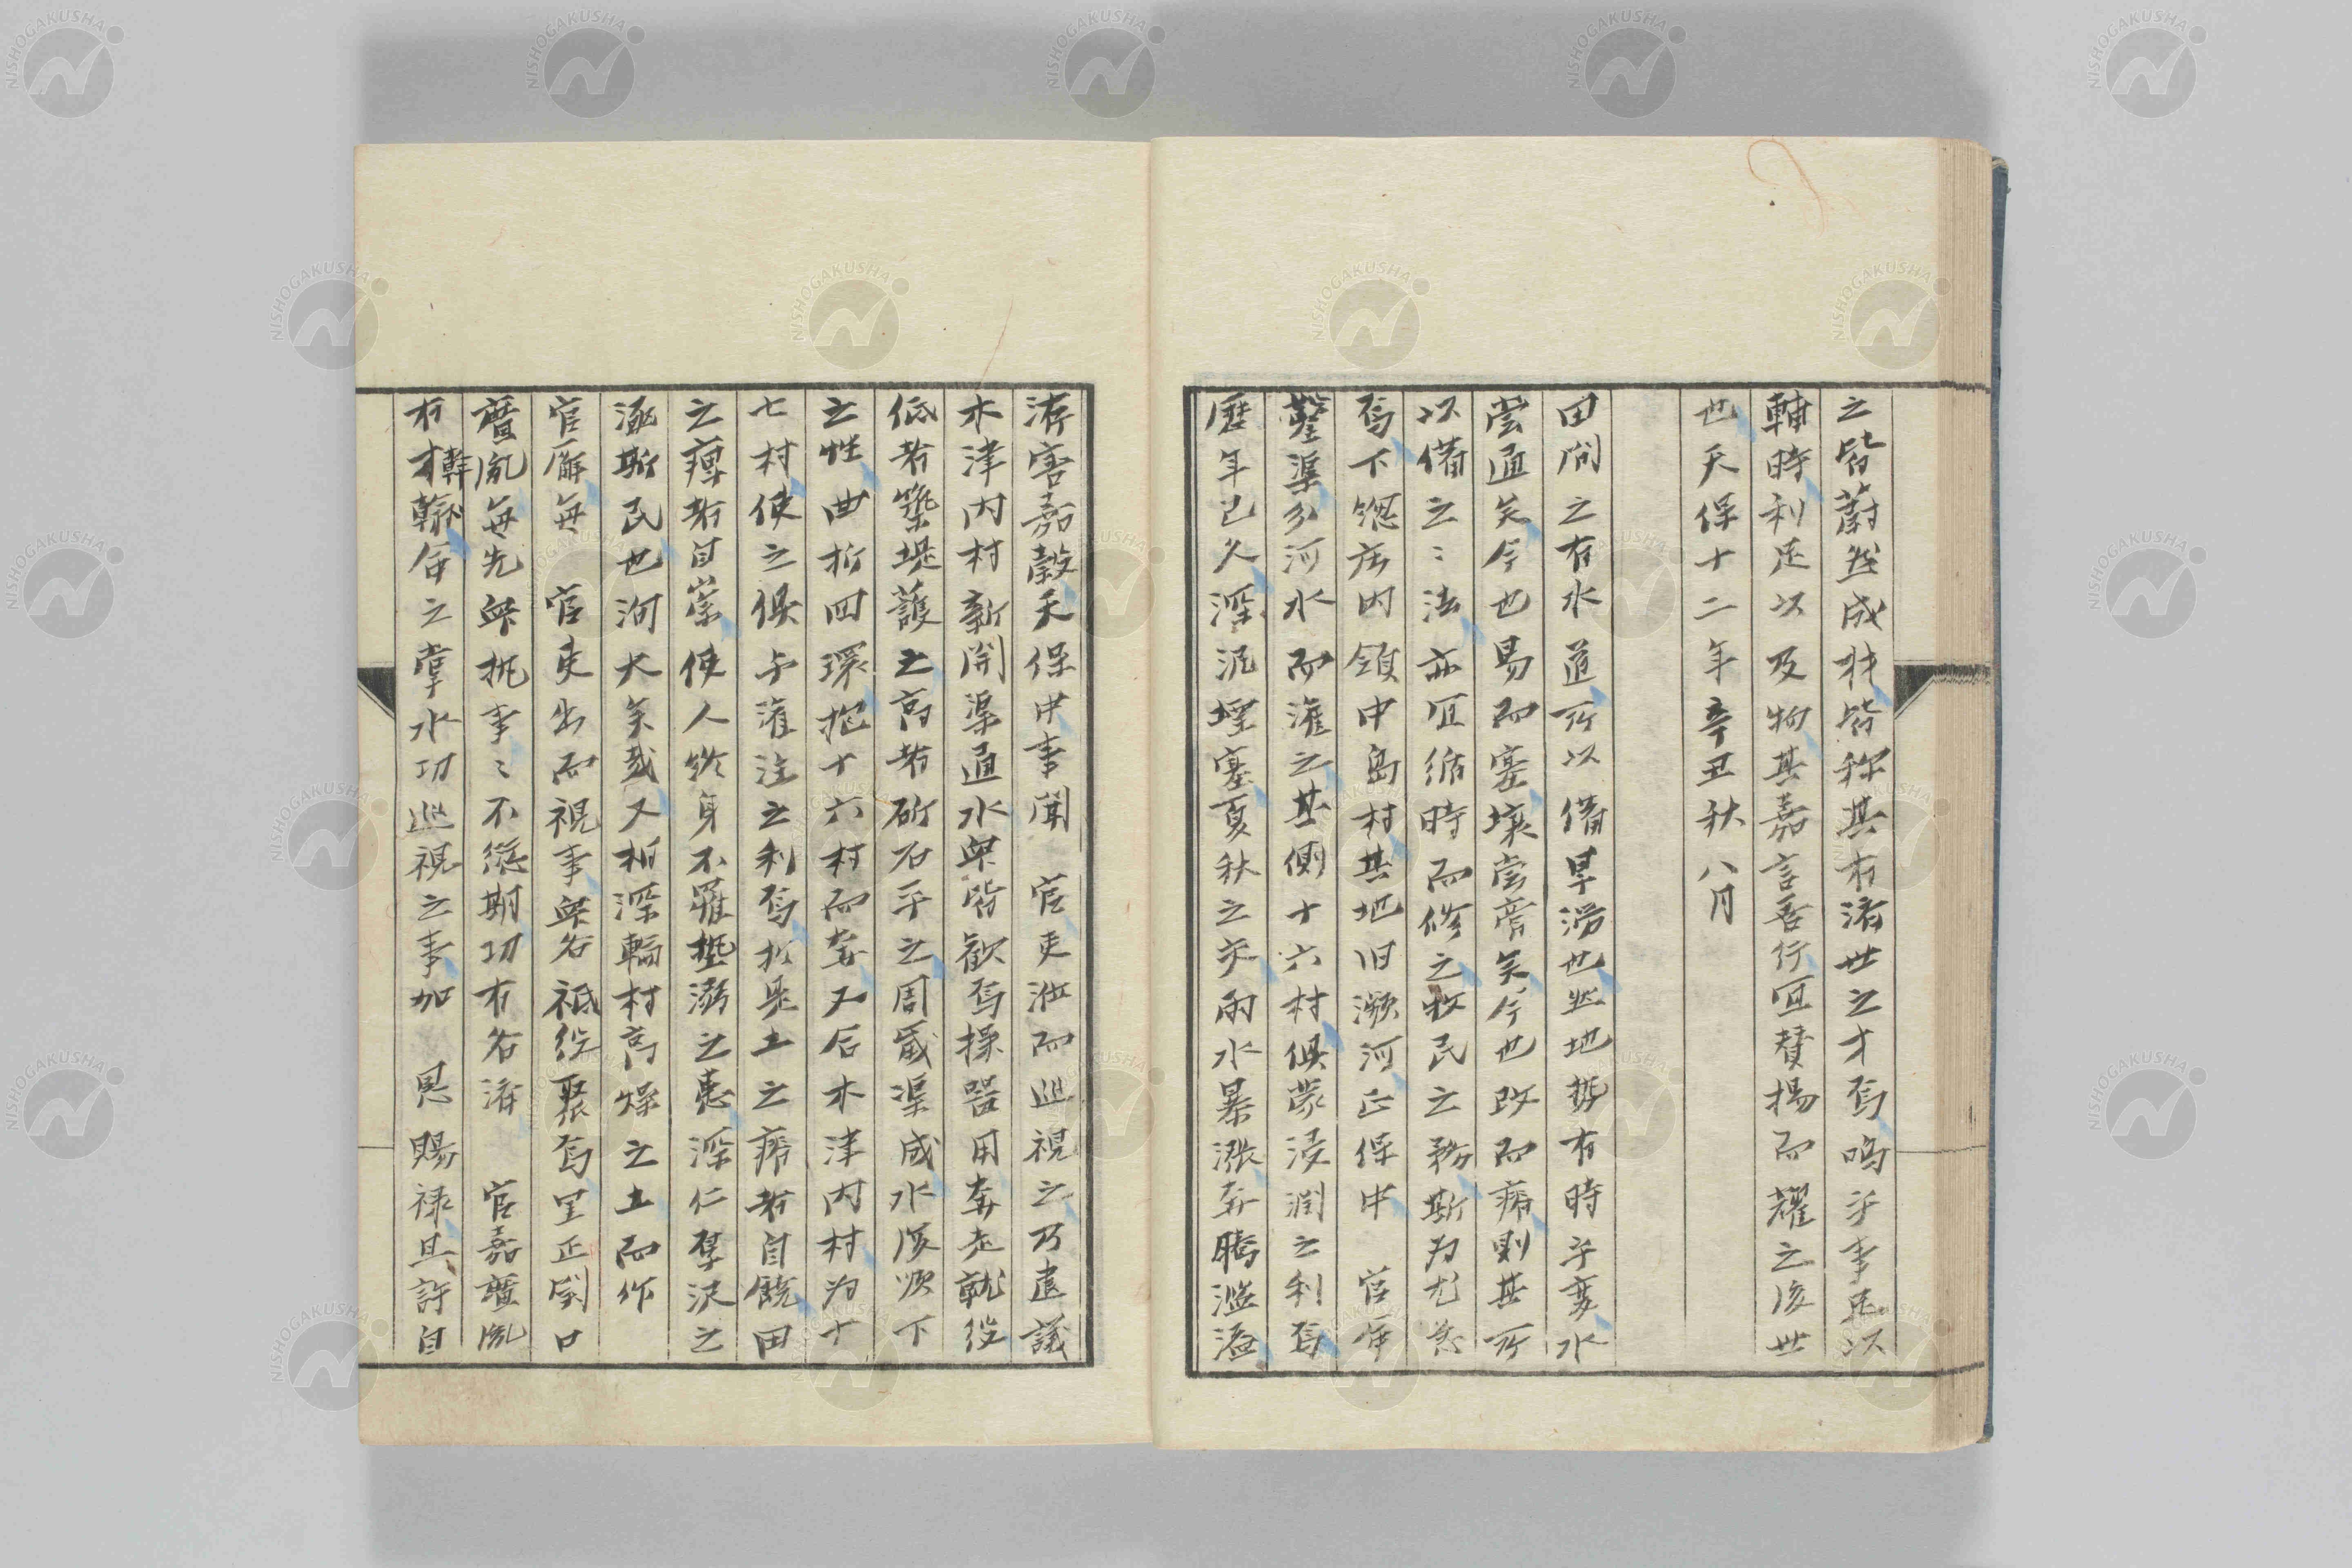 之皆蔚然成材皆称其有済世之才焉嗚乎事足以
輔時利足以及物其嘉言善行宜賛揚而耀之後世
也天保十二年辛丑秋八月
田間之有水道所以備旱澇也然地勢有時乎変水
嘗通矣今也易而塞壌嘗膏矣今也改而瘠則其所
以備之之法亦宜循時而修之牧民之務斯为尤急
焉下総庄内領中島村其地旧瀕河正保中 官命
鑿渠分河水而灌之其側十六村倶蒙浸潤之利焉
歴年已久深泥堙塞夏秋之交雨水暴漲奔騰濫溢
洊害嘉穀天保中事聞 官吏涖而巡視之乃建議
木津内村新開渠通水衆皆歓焉操器用奔走就役
低者築堤護之高者斫石平之周歳渠成水復順下
之性曲折回環抱十六村而奔又后木津内村为十
七村使之倶与灌注之利焉於是土之瘠者自饒田
之痺者自崇使人終身不罹墊溺之患深仁厚沢之
涵斯民也洵大矣哉又相深輪村高燥之土而作
官廨毎 官吏出而視事衆各祗役聚焉里正関口
廣胤毎先衆執事事不愆期功有名済 官嘉廣胤
有才幹命之掌水功巡視之事加 恩賜禄且許自
幹